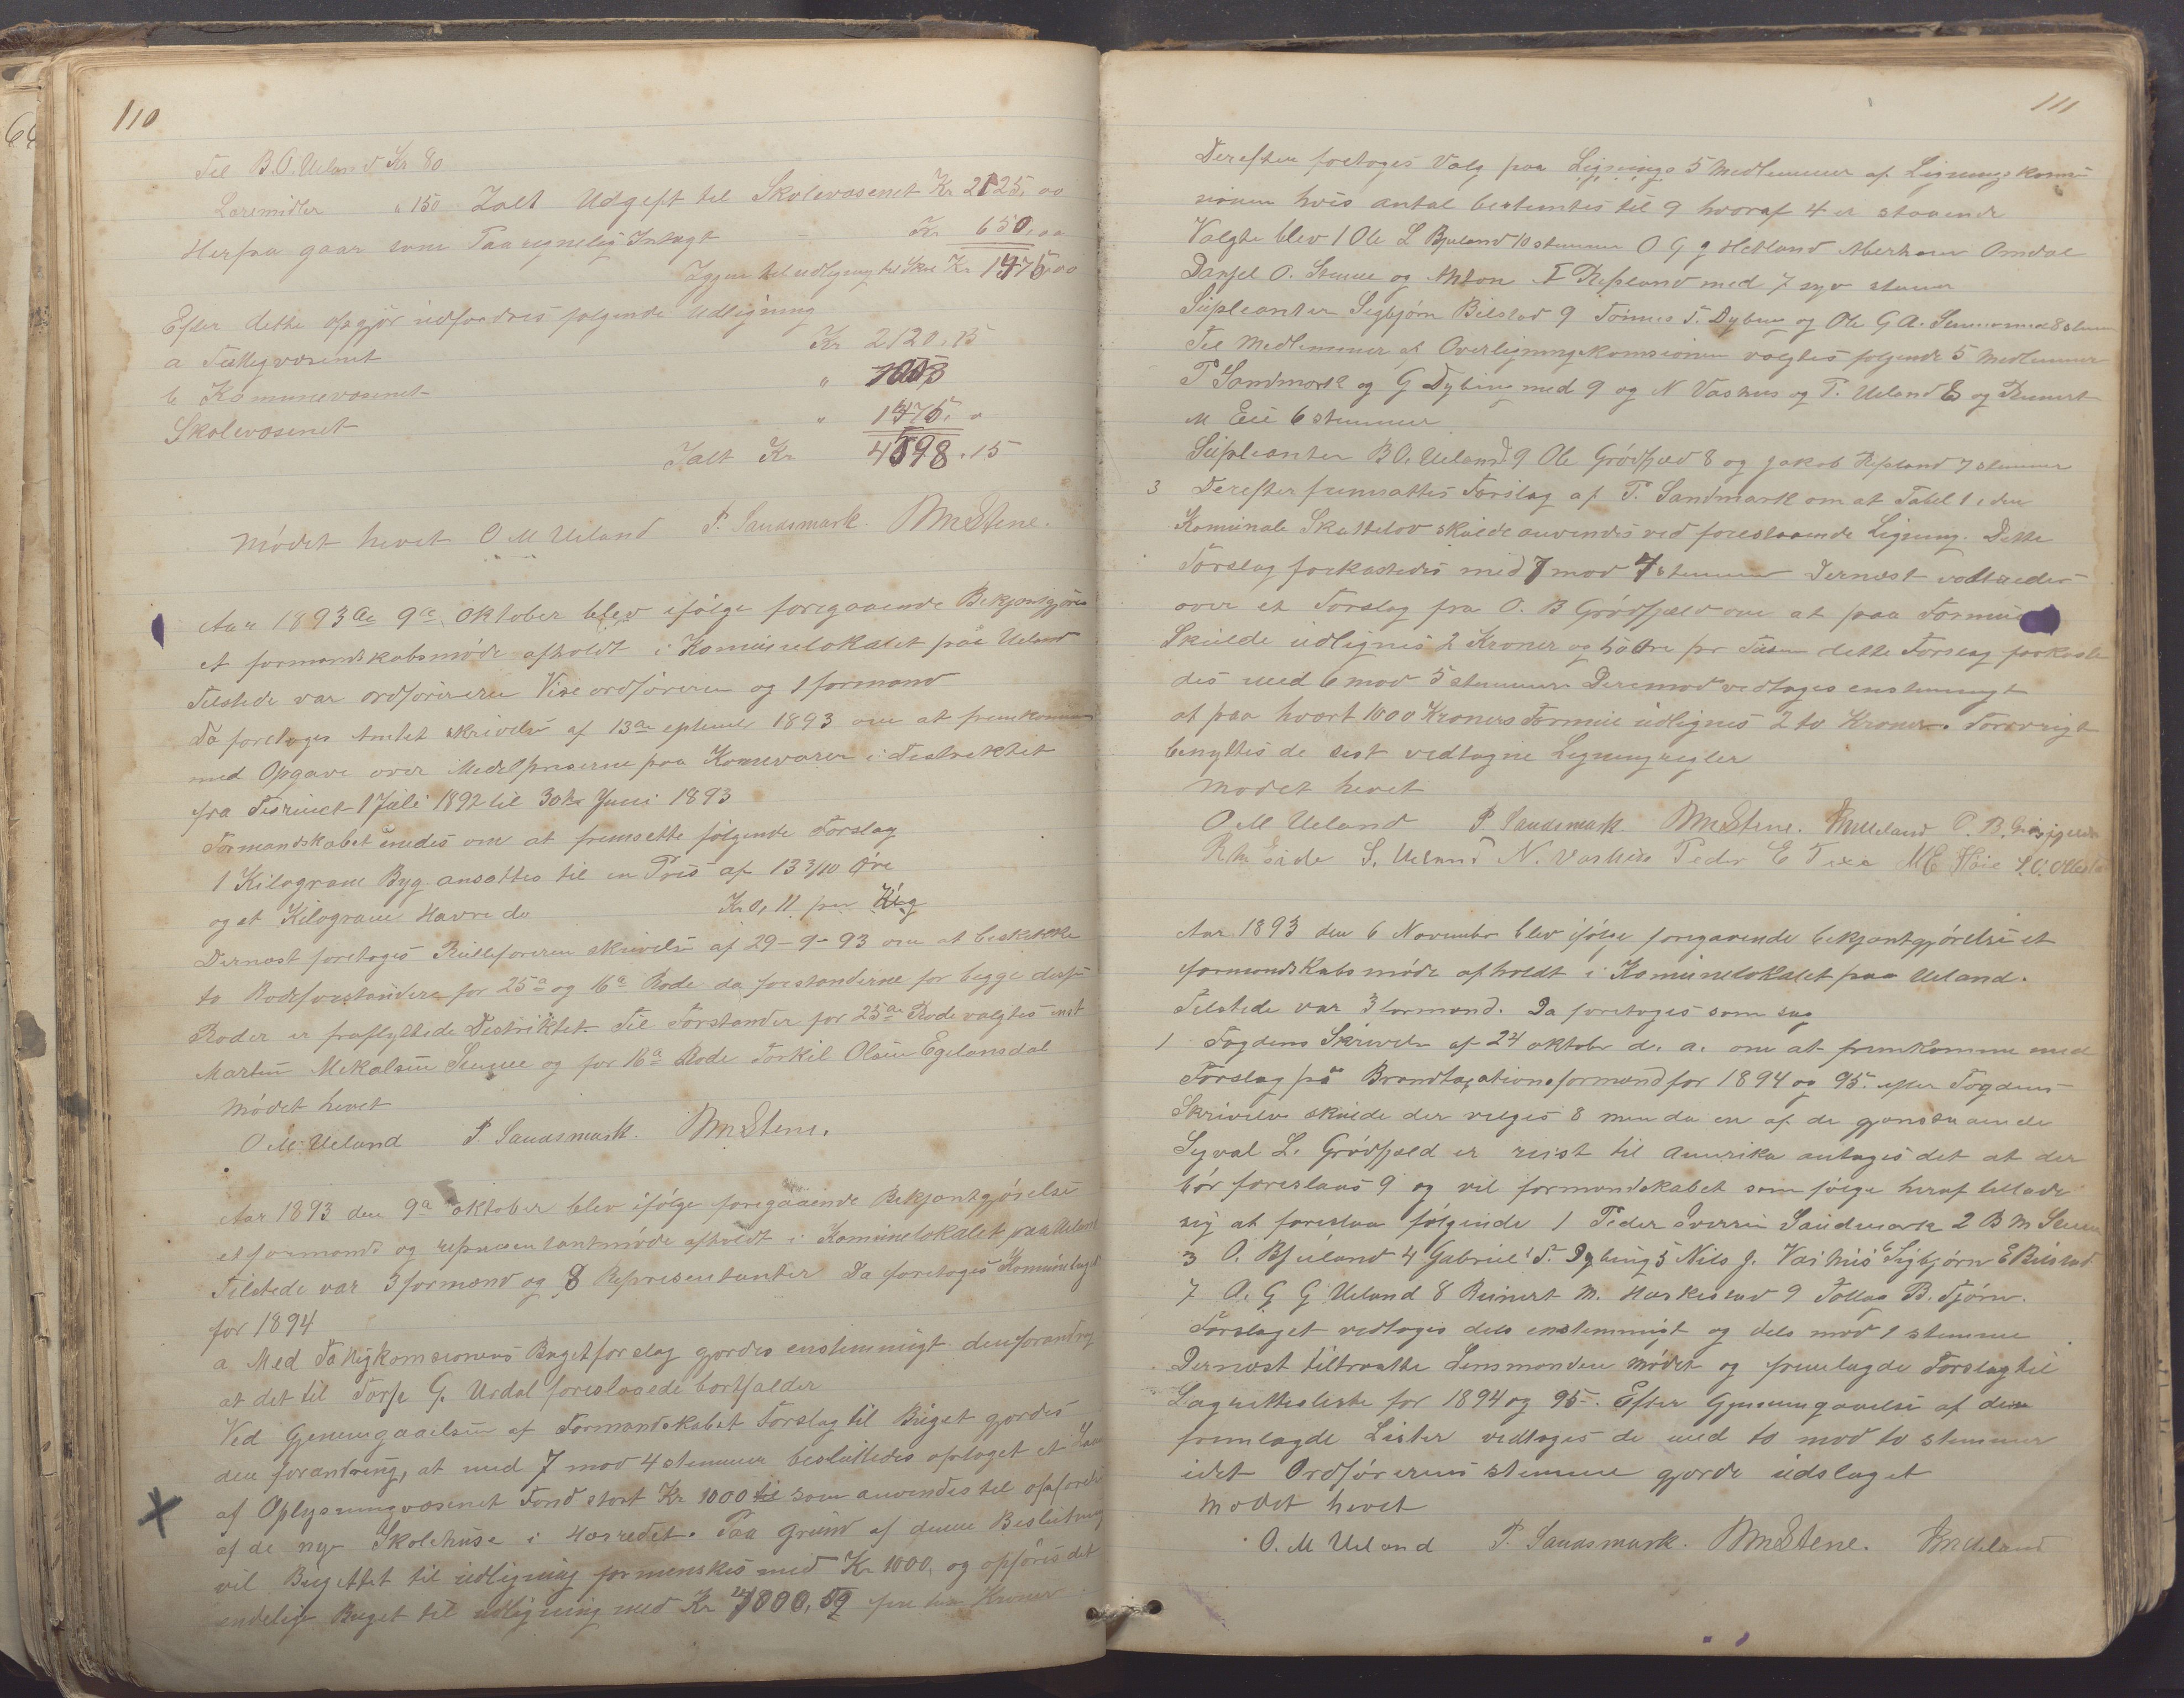 110
Til B.O. Ueland Kr 80
Læremidler " 150 Ialt Udgift til Skolevæsenet Kr 2125,00
Herfra gaar som Paaregnelig Indtægt - Kr 650,00
Igjen til udligning til Skol Kr 1475,00
Efter dette opgjør udfordres følgende Udligning
a Fattigvæsenet Kr 2120,15
b Komunevæsenet "
Skolevæsenet " 1475,0
Ialt Kr 4598,15
Mødet hevet O M Ueland P. Sandsmark. BM Stene.
Aar 1893 de 9de Oktober blev ifølge foregaaende Bekjentgjørels
et formandskabsmøde afholdt i Komunelokalet paa Ueland
Tilstede var ordføreren Viseordføreren og 1 formand
Da foretoges Amtets skrivelse af 13de eptembr 1893 om at fremkomme
med Opgave over Medelpriserne paa Kornvarer i Destriktet
fra Tisrinet 1 Juli 1892 til 30te Juni 1893
Formandskabet enedes om at fremsette følgende Forslag
1 Kilogram Byg ansattes til en Pris af 13 3/10 Øre
og et Kilogram Havre do Kr 0,11 per Klg
Dernæst foretoges Rulleførerens skrivelse af 29-9-93 om at beskikke
to Rodeforstandere for 25de og 16de Rode da forstanderne for begge disse
Roder er fraflyttede Destriktet. Til Forstander for 25de Rode valgtes enst
Martin Mekalsen Stene og for 16de Rode Torkil Olsen Egelandsdal
Mødet hevet
O M Ueland P. Sandsmark. BM Stene.
Aar 1893 den 9de oktober blev ifølge foregaaende Bekjentgjørelse
et formands og representantmøde afholdt i Komunelokalet paa Ueland
Tilstede var 3 formænd og 8 Representanter Da foretoges Komunebuget
for 1894
a Med Fattigkomsionens Bugetforslag gjordes enstemmigt den forandring
at det til Torje G. Urdal foreslaaede bortfalder
Ved Gjenemgaaelsen af Formandskabet Forslag til Buget gjordes
den forandring, at med 7 mod 4 stemmer besluttedes optaget et Laan
af Oplysningvæsenet Fond stort Kr 1000 som anvendes til opførelse
af de nye Skolehuse i Herredet. Paa Grund af denne Beslutning
vil Bugettet til udligning formenskes med Kr 1000, og opføres det
endelige Buget til udligning med Kr
111
Derefter foretoges Valg paa Lignings 5 Medlemmer af Ligningskomi
sionen hvis antal bestemtes til 9 hvoraf 4 er staaende
Valgte blev 1 Ole L Bjuland 10 stemmer O G g Hetland Aberham Omdal
Danjel O. Stene og Anton T Repland med 7 syv stemer
Supleanter Segbjørn Bilstad 9 Tønnes T. Dybing og Ole G A. Stene med 8 stem
Til Medlemmer af Overligningskomsionen valgtes følgende 5 Medlemmer
P Sandmark og G Dybing med 9 og N Vashus og T. Ueland 8 og Reinert
M Eie 6 stemmer
Supleanter B O. Ueland 9 Ole Grødfjæd 8 og Jakob Repland 7 stemmer
3 Derefter fremsattes Forslag af P. Sandmark om at Tabel 1 i den
Komunale Skattelov skulde anvendes ved forestaaende Ligning. Dette
Forslag forkastedes med 7 mod 4 stemmer Dernæst votteredes
over et Forslag fra O. B Grødfjæld om at paa Formue
Skulde udlignes 2 Kroner og 50 Øre pr Tusen dette Forslag forkaste
des med 6 mod 5 stemmer Deremod vedtoges enstemmigt
at paa hvert 1000 Kroners Formue udlignes 2 to Kroner. Forøvrigt
benyttes de sist vedtagne Ligningregler
Mødet hevet
O M Ueland P. Sandsmark. BM Stene. O. B. Grødfjeld
R M Eide S. Ueland N. Vashus Peder E Texe M E Høie
Aar 1893 den 6 November blev ifølge foregaaende bekjentgjørelse et
formandskabsmøde afholdt i Komunelokalet paa Ueland.
Tilstede var 3 formænd. Da foretoges som sag
1 Fogdens Skrivelse af 24 oktober d. a. om at fremkomme med
Forslag på Brandtaxationsformænd for 1894 og 95. efter Fogdens
Skrivelse skulde der velges 8 men da en af de gjenstaaende
Sigval L. Grødfjeld er reist til Amerika antages det at der
bør foreslaas 9 og vil formandskabet som følge heraf tillade
sig at foreslaa følgende 1 Peder Sverin Sandmark 2 B M Stene
3 O. Bjuland 4 Gabriel T. Dybing 5 Nils J. Vashus 6 Sigbjørn E Bilstad
7 O. G G Ueland 8 Reinert M. Haskestad 9 Tollag B. Tjørn.
Forslaget vedtoges dels enstemmigt og dels mod 1 stemme
Dernæst tiltraatte Lensmanden mødet og fremlagde Forslag til
Lagretteliste for 1894 og 95. Efter Gjenemgaaelse af den
fremlagde Lister vedtoges de med to mod to stemmer
idet Ordførerens stemme gjorde udslaget
Mødet hevet
O. M Ueland P. Sandsmark. BM Stene. TM Ueland